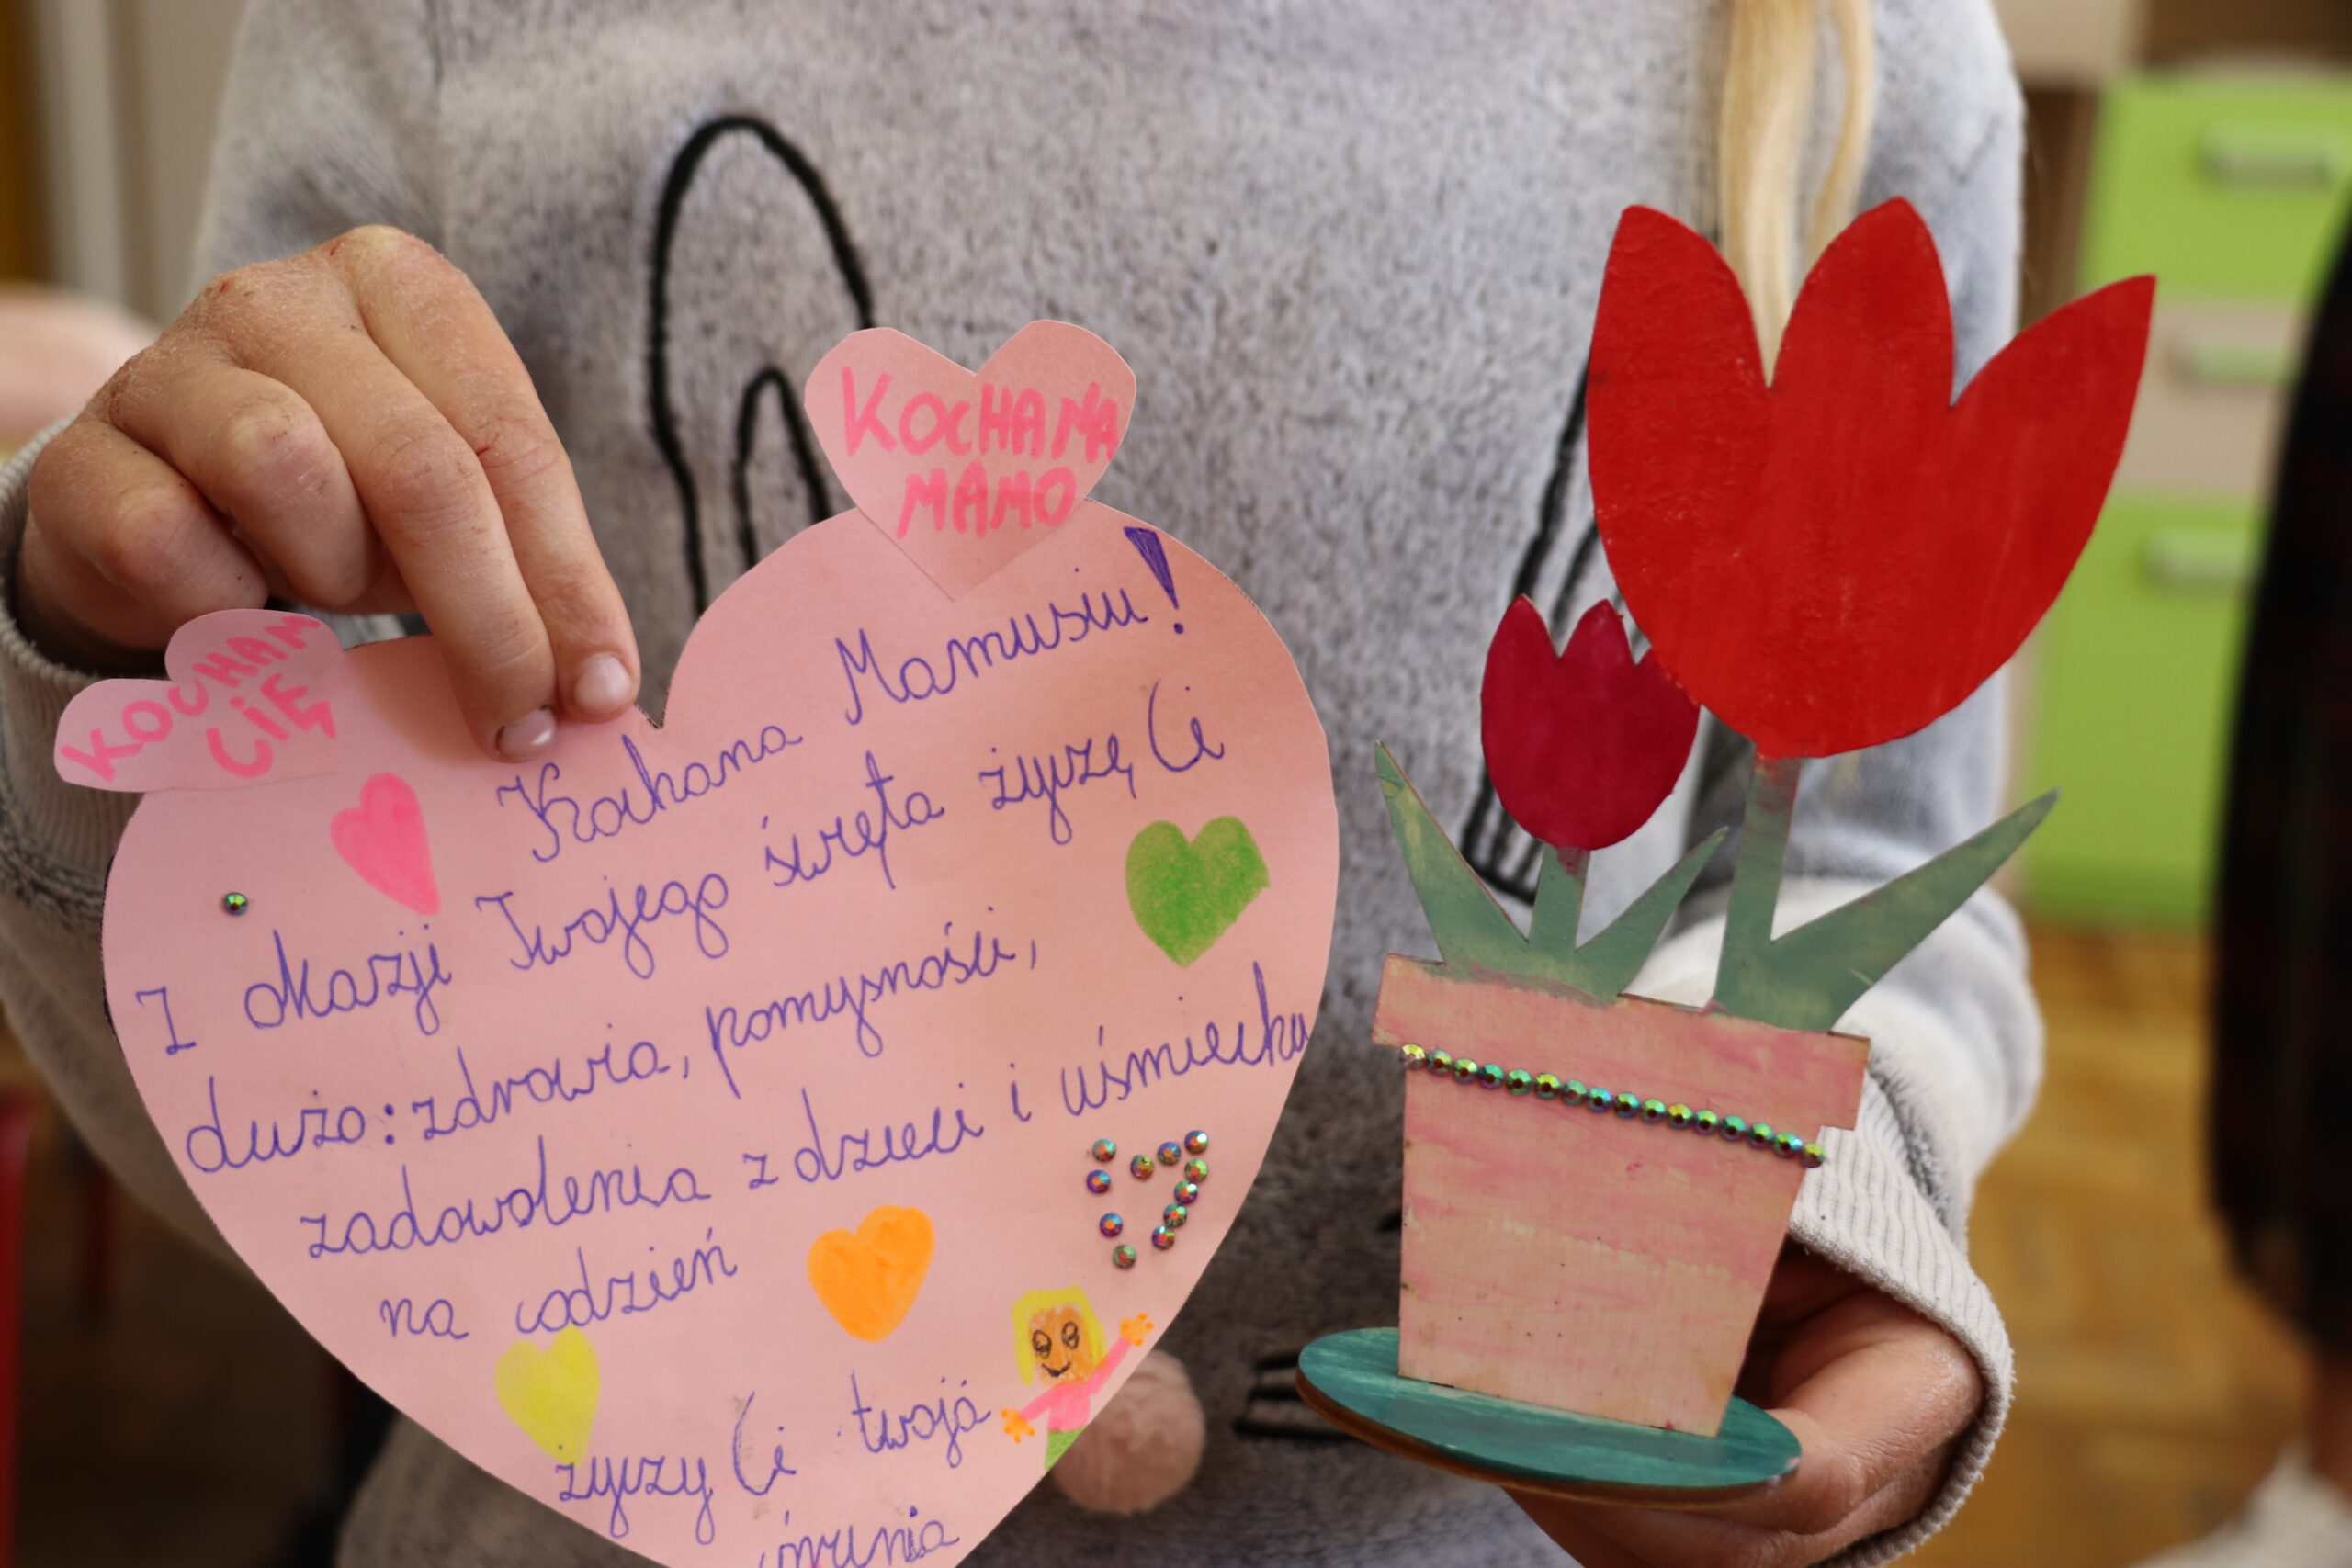 KOCHAM
CIĘ
KOCHANA
MAMO
Kochana Mamusiu!
Z okazji Twojego święta życzę Ci
dużo: zdrowia, pomyśności,
zadowolenia z dzieci i uśmiechu
na codzień
życzy Ci twoja